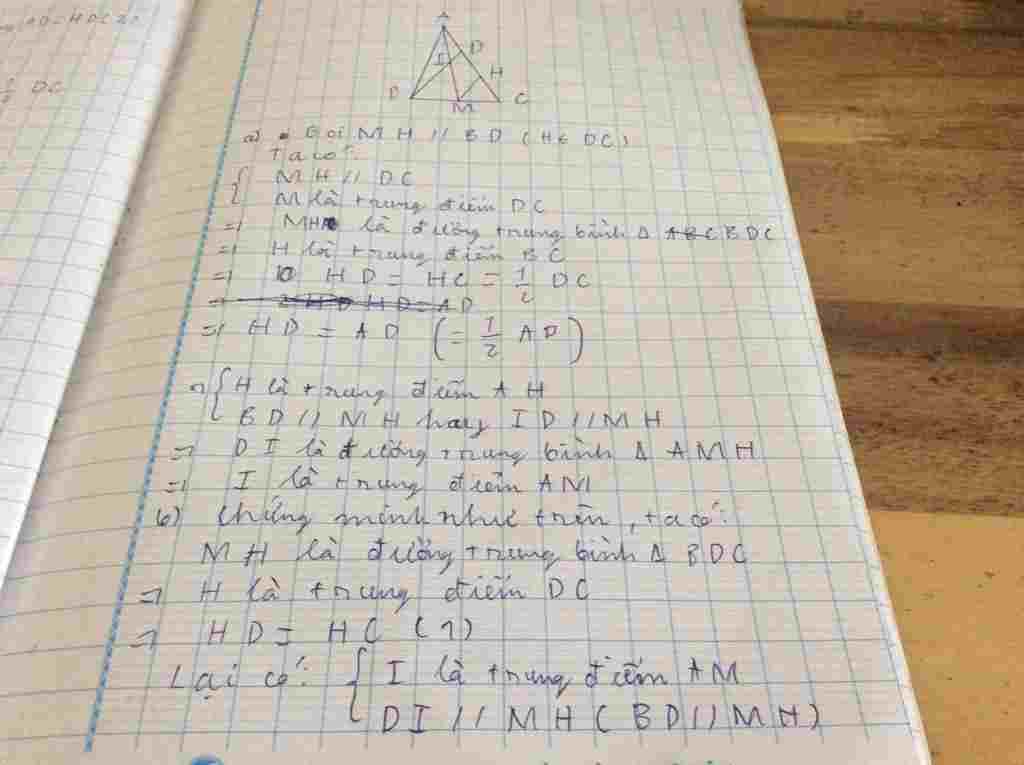 DC
A
I D
H
D M C
a) Gọi MH // BD (H ∈ DC)
Ta có:
MH // DC
M là trung điểm DC
=> MH là đường trung bình Δ ABC BDC
=> H là trung điểm BC
=> HD = HC = 1/2 DC
=> HD = AD
=> HD = AD (= 1/2 AD)
=> H là trung điểm AH
BD // MH hay ID // MH
=> DI là đường trung bình Δ AMH
=> I là trung điểm AM
b) Chứng minh như trên, ta có:
MH là đường trung bình Δ BDC
=> H là trung điểm DC
=> HD = HC (1)
Lại có: I là trung điểm AM
DI // MH (BD // MH)